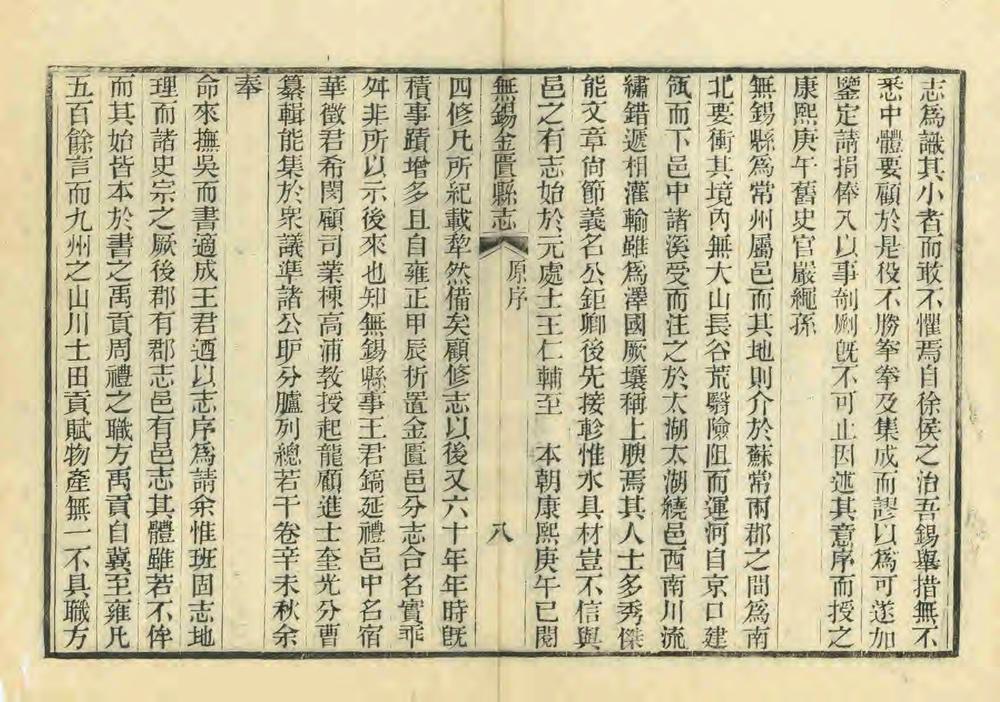 志爲識其小者而敢不懼焉自徐侯之治吾錫舉措無不
悉中體要顧於是役不勝拳拳及集成而謬以爲可遂加
鑒定請捐俸入以事剞劂旣不可止因述其意序而授之
康熙庚午舊史官嚴繩孫
無錫縣爲常州屬邑而其地則介於蘇常兩郡之間爲南
北要衝其境內無大山長谷荒翳險阻而運河自京口建
瓴而下邑中諸溪受而注之於太湖太湖繞邑西南川流
繡錯遞相灌輸雖爲澤國厥壤稱上腴焉其人士多秀傑
能文章尙節義名公鉅卿後先接軫惟水具材豈不信與
邑之有志始於元處士王仁輔至 本朝康熙庚午已閱
無錫金匱縣志 原序 八
四修凡所紀載犂然備矣顧修志以後又六十年年時旣
積事蹟增多且自雍正甲辰析置金匱邑分志合名實乖
舛非所以示後來也知無錫縣事王君鎬延禮邑中名宿
華徵君希閔顧司業棟高浦教授起龍顧進士奎光分曹
纂輯能集於衆議準諸公昈分臚列總若干卷辛未秋余
奉
命來撫吳而書適成王君迺以志序爲請余惟班固志地
理而諸史宗之厥後郡有郡志邑有邑志其體雖若不侔
而其始皆本於書之禹貢周禮之職方禹貢自冀至雍凡
五百餘言而九州之山川土田貢賦物產無一不具職方